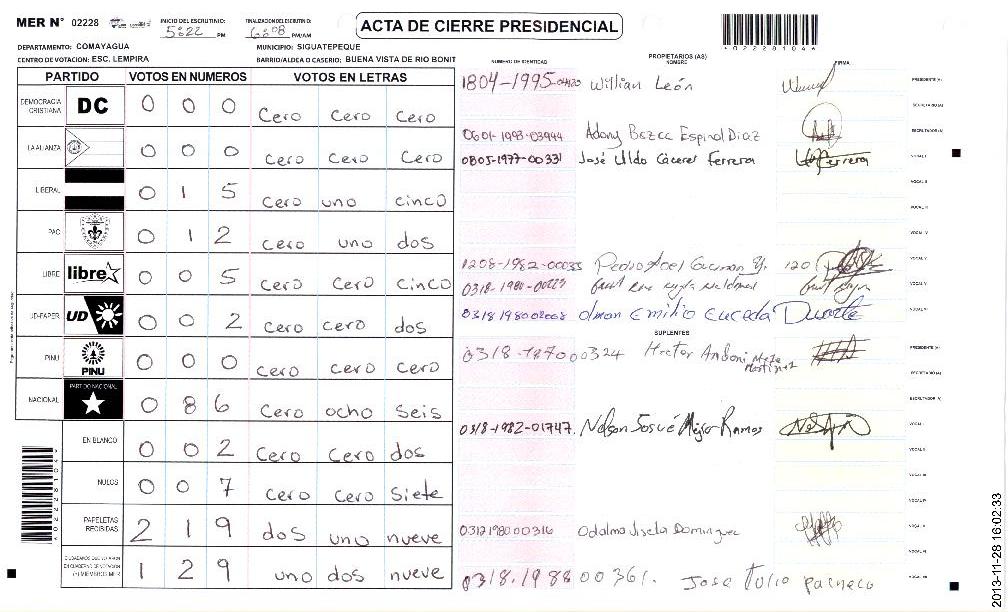 MER N° 02228
INICIO DEL ESCRUTINIO: 5:22 PM
FINALIZACION DEL ESCRUTINIO: 6:08 PM/AM
ACTA DE CIERRE PRESIDENCIAL
DEPARTAMENTO: COMAYAGUA
MUNICIPIO: SIGUATEPEQUE
CENTRO DE VOTACION: ESC. LEMPIRA
BARRIO/ALDEA O CASERIO: BUENA VISTA DE RIO BONIT
PARTIDO VOTOS EN NUMEROS VOTOS EN LETRAS
DEMOCRACIA CRISTIANA DC 0 0 0 Cero Cero Cero
LA ALIANZA 0 0 0 Cero Cero Cero
LIBERAL 0 1 5 Cero uno cinco
PAC 0 1 2 Cero uno dos
LIBRE libre 0 0 5 Cero Cero Cinco
UD-FAPER UD 0 0 2 Cero cero dos
PINU PINU 0 0 0 Cero cero cero
NACIONAL PARTIDO NACIONAL 0 8 6 Cero ocho seis
EN BLANCO 0 0 2 Cero Cero dos
NULOS 0 0 7 Cero Cero Siete
PAPELETAS RECIBIDAS 2 1 9 dos uno nueve
1 2 9 uno dos nueve
NUMERO DE IDENTIDAD
PROPIETARIOS (AS)
NOMBRE
FIRMA
1804-1995- Willian León
0601-1993-03944 Adony Espinal Diaz
0805-1977-00331 José Ildo Cáceres Ferrera
1208-1982-00035 Pedro Joel Guzman Y.
0318-1980-
0318 1980 02008 Olman Emilio Euceda Duarte
SUPLENTES
0318-1870 00324 Hector Andoni Meza Martinez
0318-1982-01747. Nelson Josué Mejía Ramos
0312 1980 00316 Odalma Disela Dominguez
0318.1988 00361. Jose Tulio pacheco
PRESIDENTE (A)
SECRETARIO (A)
ESCRUTADOR (A)
VOCAL I
VOCAL II
VOCAL III
VOCAL IV
VOCAL V
PRESIDENTE (A)
SECRETARIO (A)
ESCRUTADOR (A)
VOCAL I
VOCAL II
2013-11-28 16:02:33